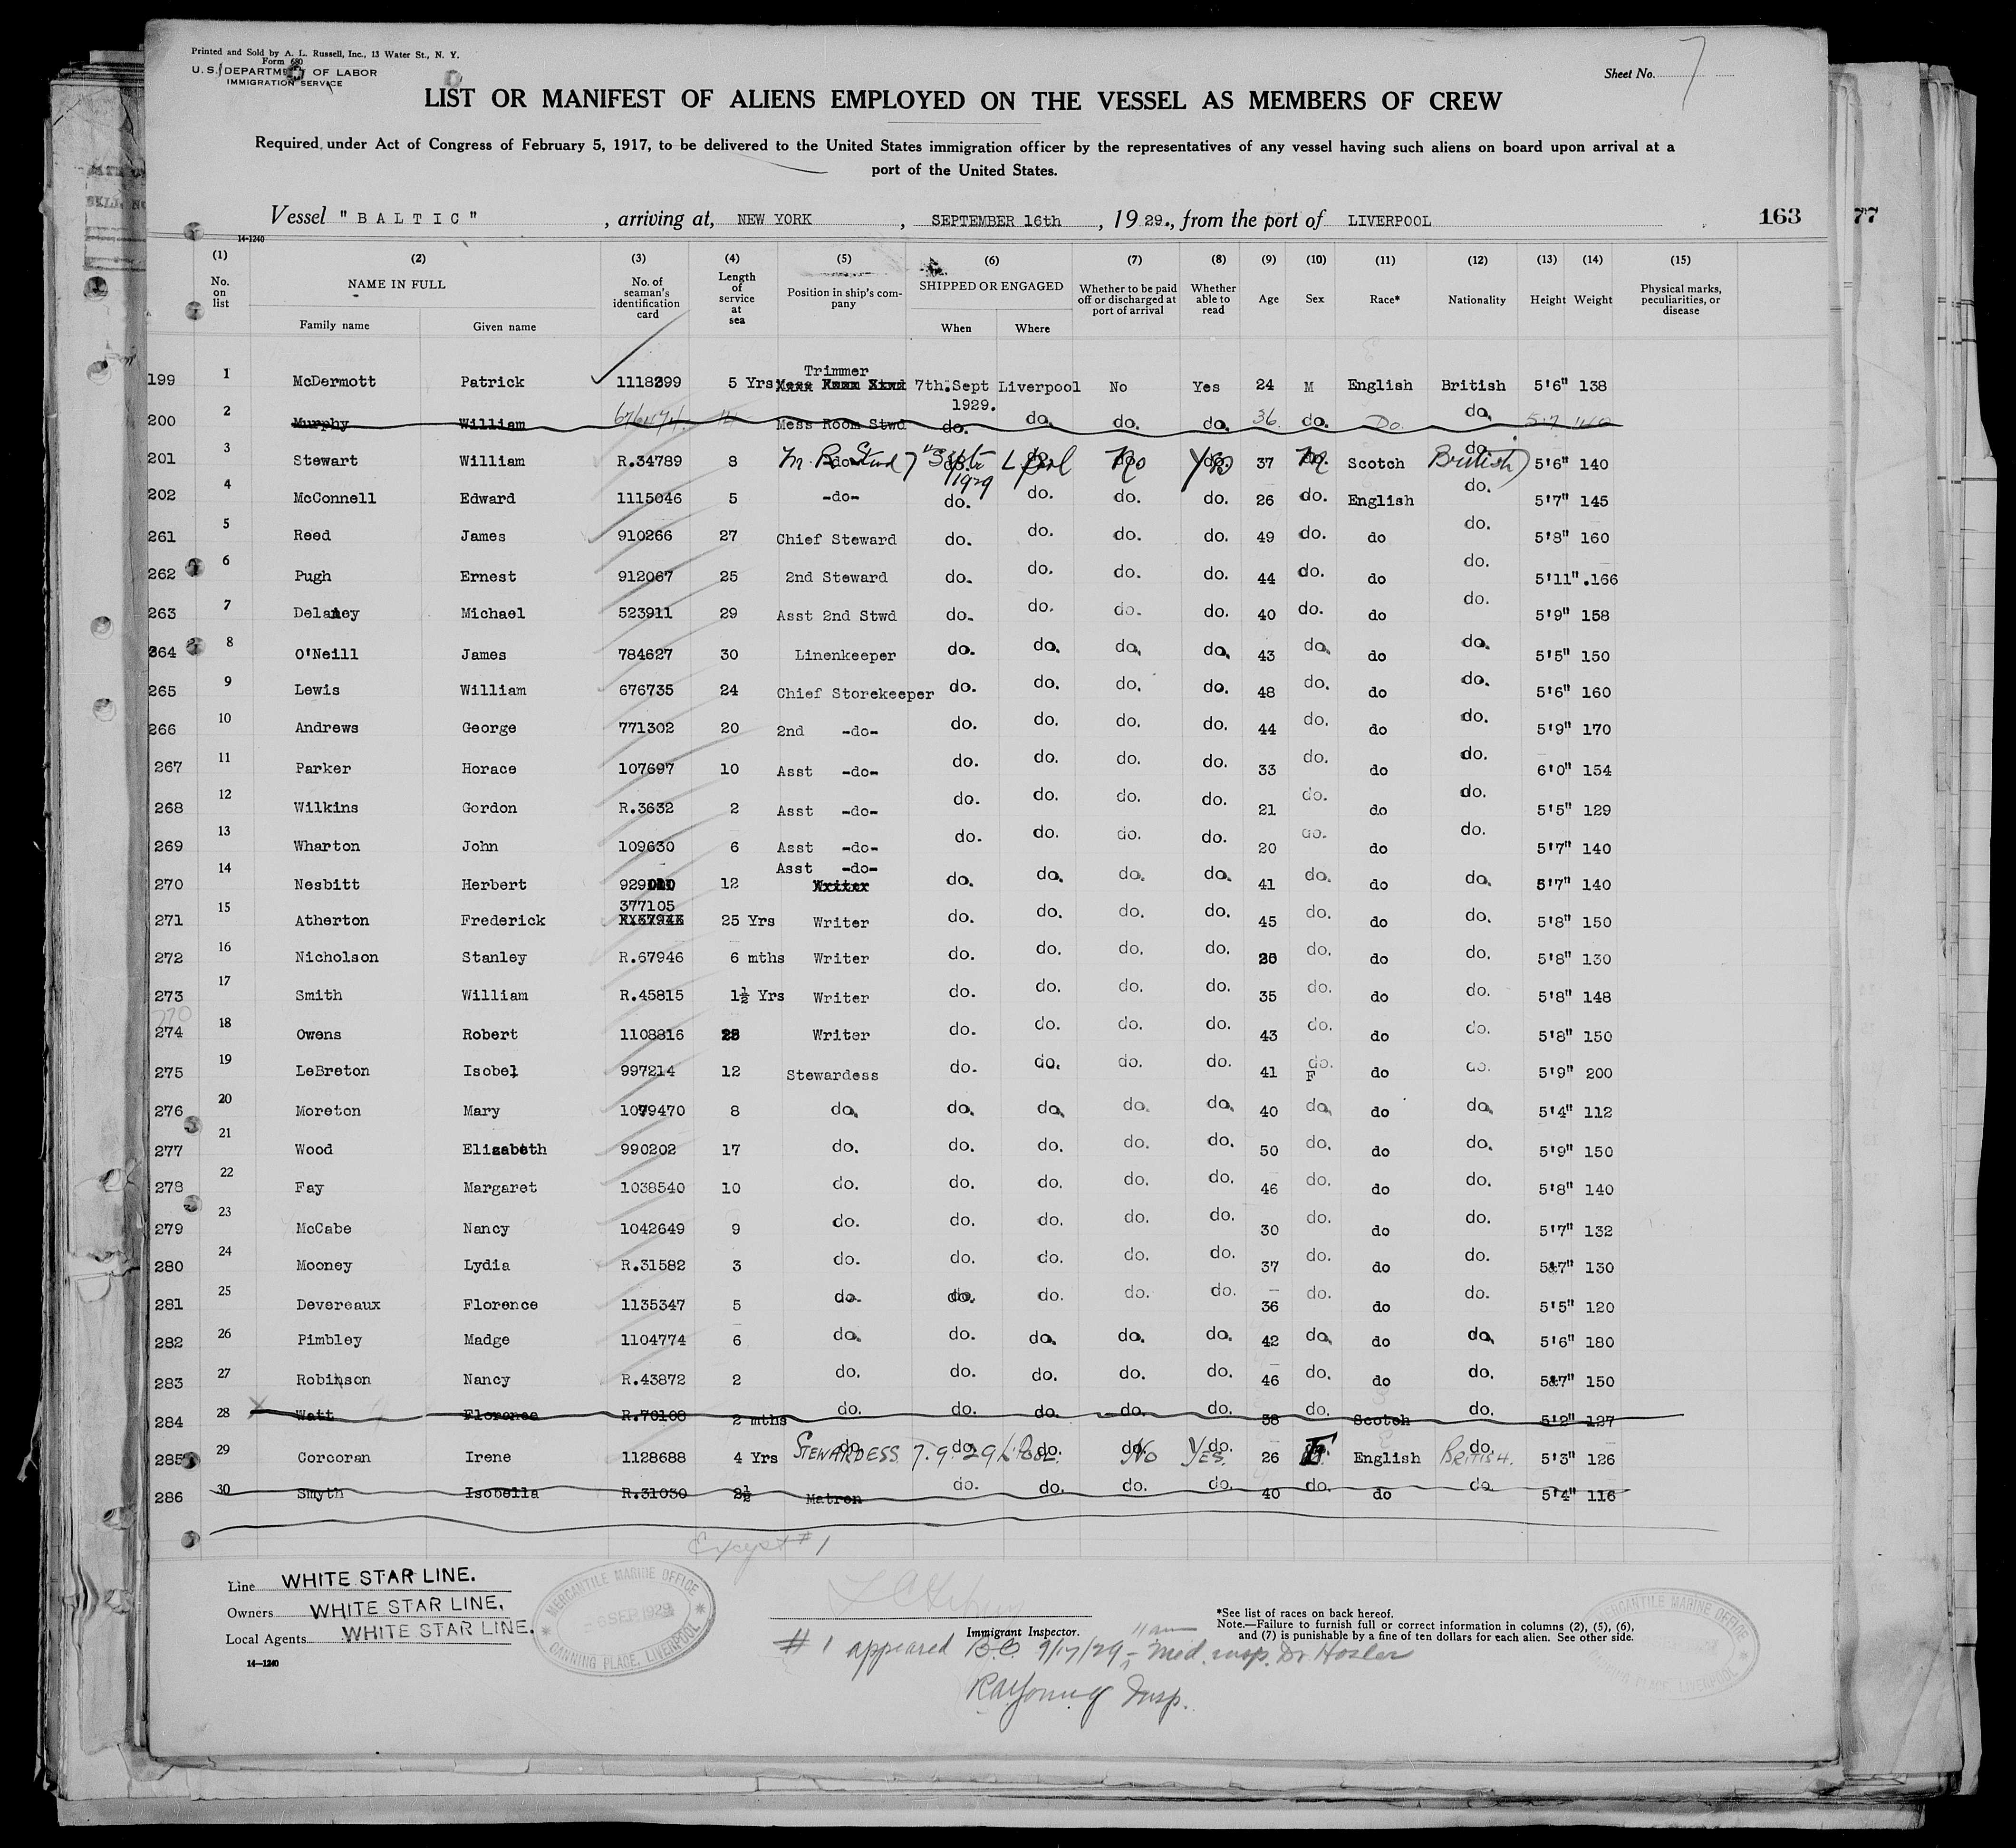 Printed and Sold by A. L. Russell, Inc., 13 Water St., N. Y.
Form 680
U. S. DEPARTMENT OF LABOR
IMMIGRATION SERVICE
Sheet No. 7
LIST OR MANIFEST OF ALIENS EMPLOYED ON THE VESSEL AS MEMBERS OF CREW
Required under Act of Congress of February 5, 1917, to be delivered to the United States immigration officer by the representatives of any vessel having such aliens on board upon arrival at a
port of the United States.
Vessel "BALTIC", arriving at, NEW YORK, SEPTEMBER 16th, 1929., from the port of LIVERPOOL 163 77
14-1240
(1) (2) (3) (4) (5) (6) (7) (8) (9) (10) (11) (12) (13) (14) (15)
No. on list NAME IN FULL Family name Given name No. of seaman's identification card Length of service at sea Position in ship's company SHIPPED OR ENGAGED When Where Whether to be paid off or discharged at port of arrival Whether able to read Age Sex Race* Nationality Height Weight Physical marks, peculiarities, or disease
199 1 McDermott Patrick 1118299 5 Yrs Trimmer 7th.Sept 1929. Liverpool No Yes 24 M English British 5'6" 138
200 2 Murphy William 676474 Mess Room Stwd do. do. do. do. 36 do. Do. do. 5.7 160
201 3 Stewart William R.34789 8 M. R. Stwd 7th Sept 1929 L'pool No Yes 37 M Scotch British 5'6" 140
202 4 McConnell Edward 1115046 5 -do- do. do. do. do. 26 do. English do. 5'7" 145
261 5 Reed James 910266 27 Chief Steward do. do. do. do. 49 do. do do. 5'8" 160
262 6 Pugh Ernest 912067 25 2nd Steward do. do. do. do. 44 do. do do. 5'11" .166
263 7 Delaney Michael 523911 29 Asst 2nd Stwd do. do. do. do. 40 do. do do. 5'9" 158
264 8 O'Neill James 784627 30 Linenkeeper do. do. do. do. 43 do. do do. 5'5" 150
265 9 Lewis William 676735 24 Chief Storekeeper do. do. do. do. 48 do. do do. 5'6" 160
266 10 Andrews George 771302 20 2nd -do- do. do. do. do. 44 do. do do. 5'9" 170
267 11 Parker Horace 107697 10 Asst -do- do. do. do. do. 33 do. do do. 6'0" 154
268 12 Wilkins Gordon R.3632 2 Asst -do- do. do. do. do. 21 do. do do. 5'5" 129
269 13 Wharton John 109630 6 Asst -do- do. do. do. do. 20 do. do do. 5'7" 140
270 14 Nesbitt Herbert 12 Asst -do- Writer do. do. do. do. 41 do. do do. 5'7" 140
271 15 Atherton Frederick 377105 25 Yrs Writer do. do. do. do. 45 do. do do. 5'8" 150
272 16 Nicholson Stanley R.67946 6 mths Writer do. do. do. do. do. do do. 5'8" 130
273 17 Smith William R.45815 1½ Yrs Writer do. do. do. do. 35 do. do do. 5'8" 148
270
274 18 Owens Robert 1108816 Writer do. do. do. do. 43 do. do do. 5'8" 150
275 19 LeBreton Isobel 997214 12 Stewardess do. do. do. do. 41 do. F do do. 5'9" 200
276 20 Moreton Mary 1079470 8 do. do. do. do. do. 40 do. do do. 5'4" 112
277 21 Wood Elizabeth 990202 17 do. do. do. do. do. 50 do. do do. 5'9" 150
278 22 Fay Margaret 1038540 10 do. do. do. do. do. 46 do. do do. 5'8" 140
279 23 McCabe Nancy 1042649 9 do. do. do. do. do. 30 do. do do. 5'7" 132
280 24 Mooney Lydia R.31582 3 do. do. do. do. do. 37 do. do do. 5'7" 130
281 25 Devereaux Florence 1135347 5 do. do. do. do. do. 36 do. do do. 5'5" 120
282 26 Pimbley Madge 1104774 6 do. do. do. do. do. 42 do. do do. 5'6" 180
283 27 Robinson Nancy R.43872 2 do. do. do. do. do. 46 do. do do. 5'7" 150
284 28 Watt Florence R.70108 2 mths do. do. do. do. do. 38 do. Scotch do. 5'2" 127
285 29 Corcoran Irene 1128688 4 Yrs STEWARDESS 7.9.29 L'POOL. No YES. 26 F English BRITISH. 5'3" 126
286 30 Smyth Isobella R.31030 2½ Matron do. do. do. do. 40 do. do do. 5'4" 116
Except #1
Line WHITE STAR LINE.
Owners WHITE STAR LINE.
Local Agents WHITE STAR LINE.
14-1240
MERCANTILE MARINE OFFICE
6 SEP 1929
CANNING PLACE, LIVERPOOL
Immigrant Inspector.
*See list of races on back hereof.
Note.—Failure to furnish full or correct information in columns (2), (5), (6),
and (7) is punishable by a fine of ten dollars for each alien. See other side.
MERCANTILE MARINE OFFICE
CANNING PLACE, LIVERPOOL
11 am
# 1 appeared B.O. 9/17/29 - Med. insp. Dr Hosler
RA Young Insp.